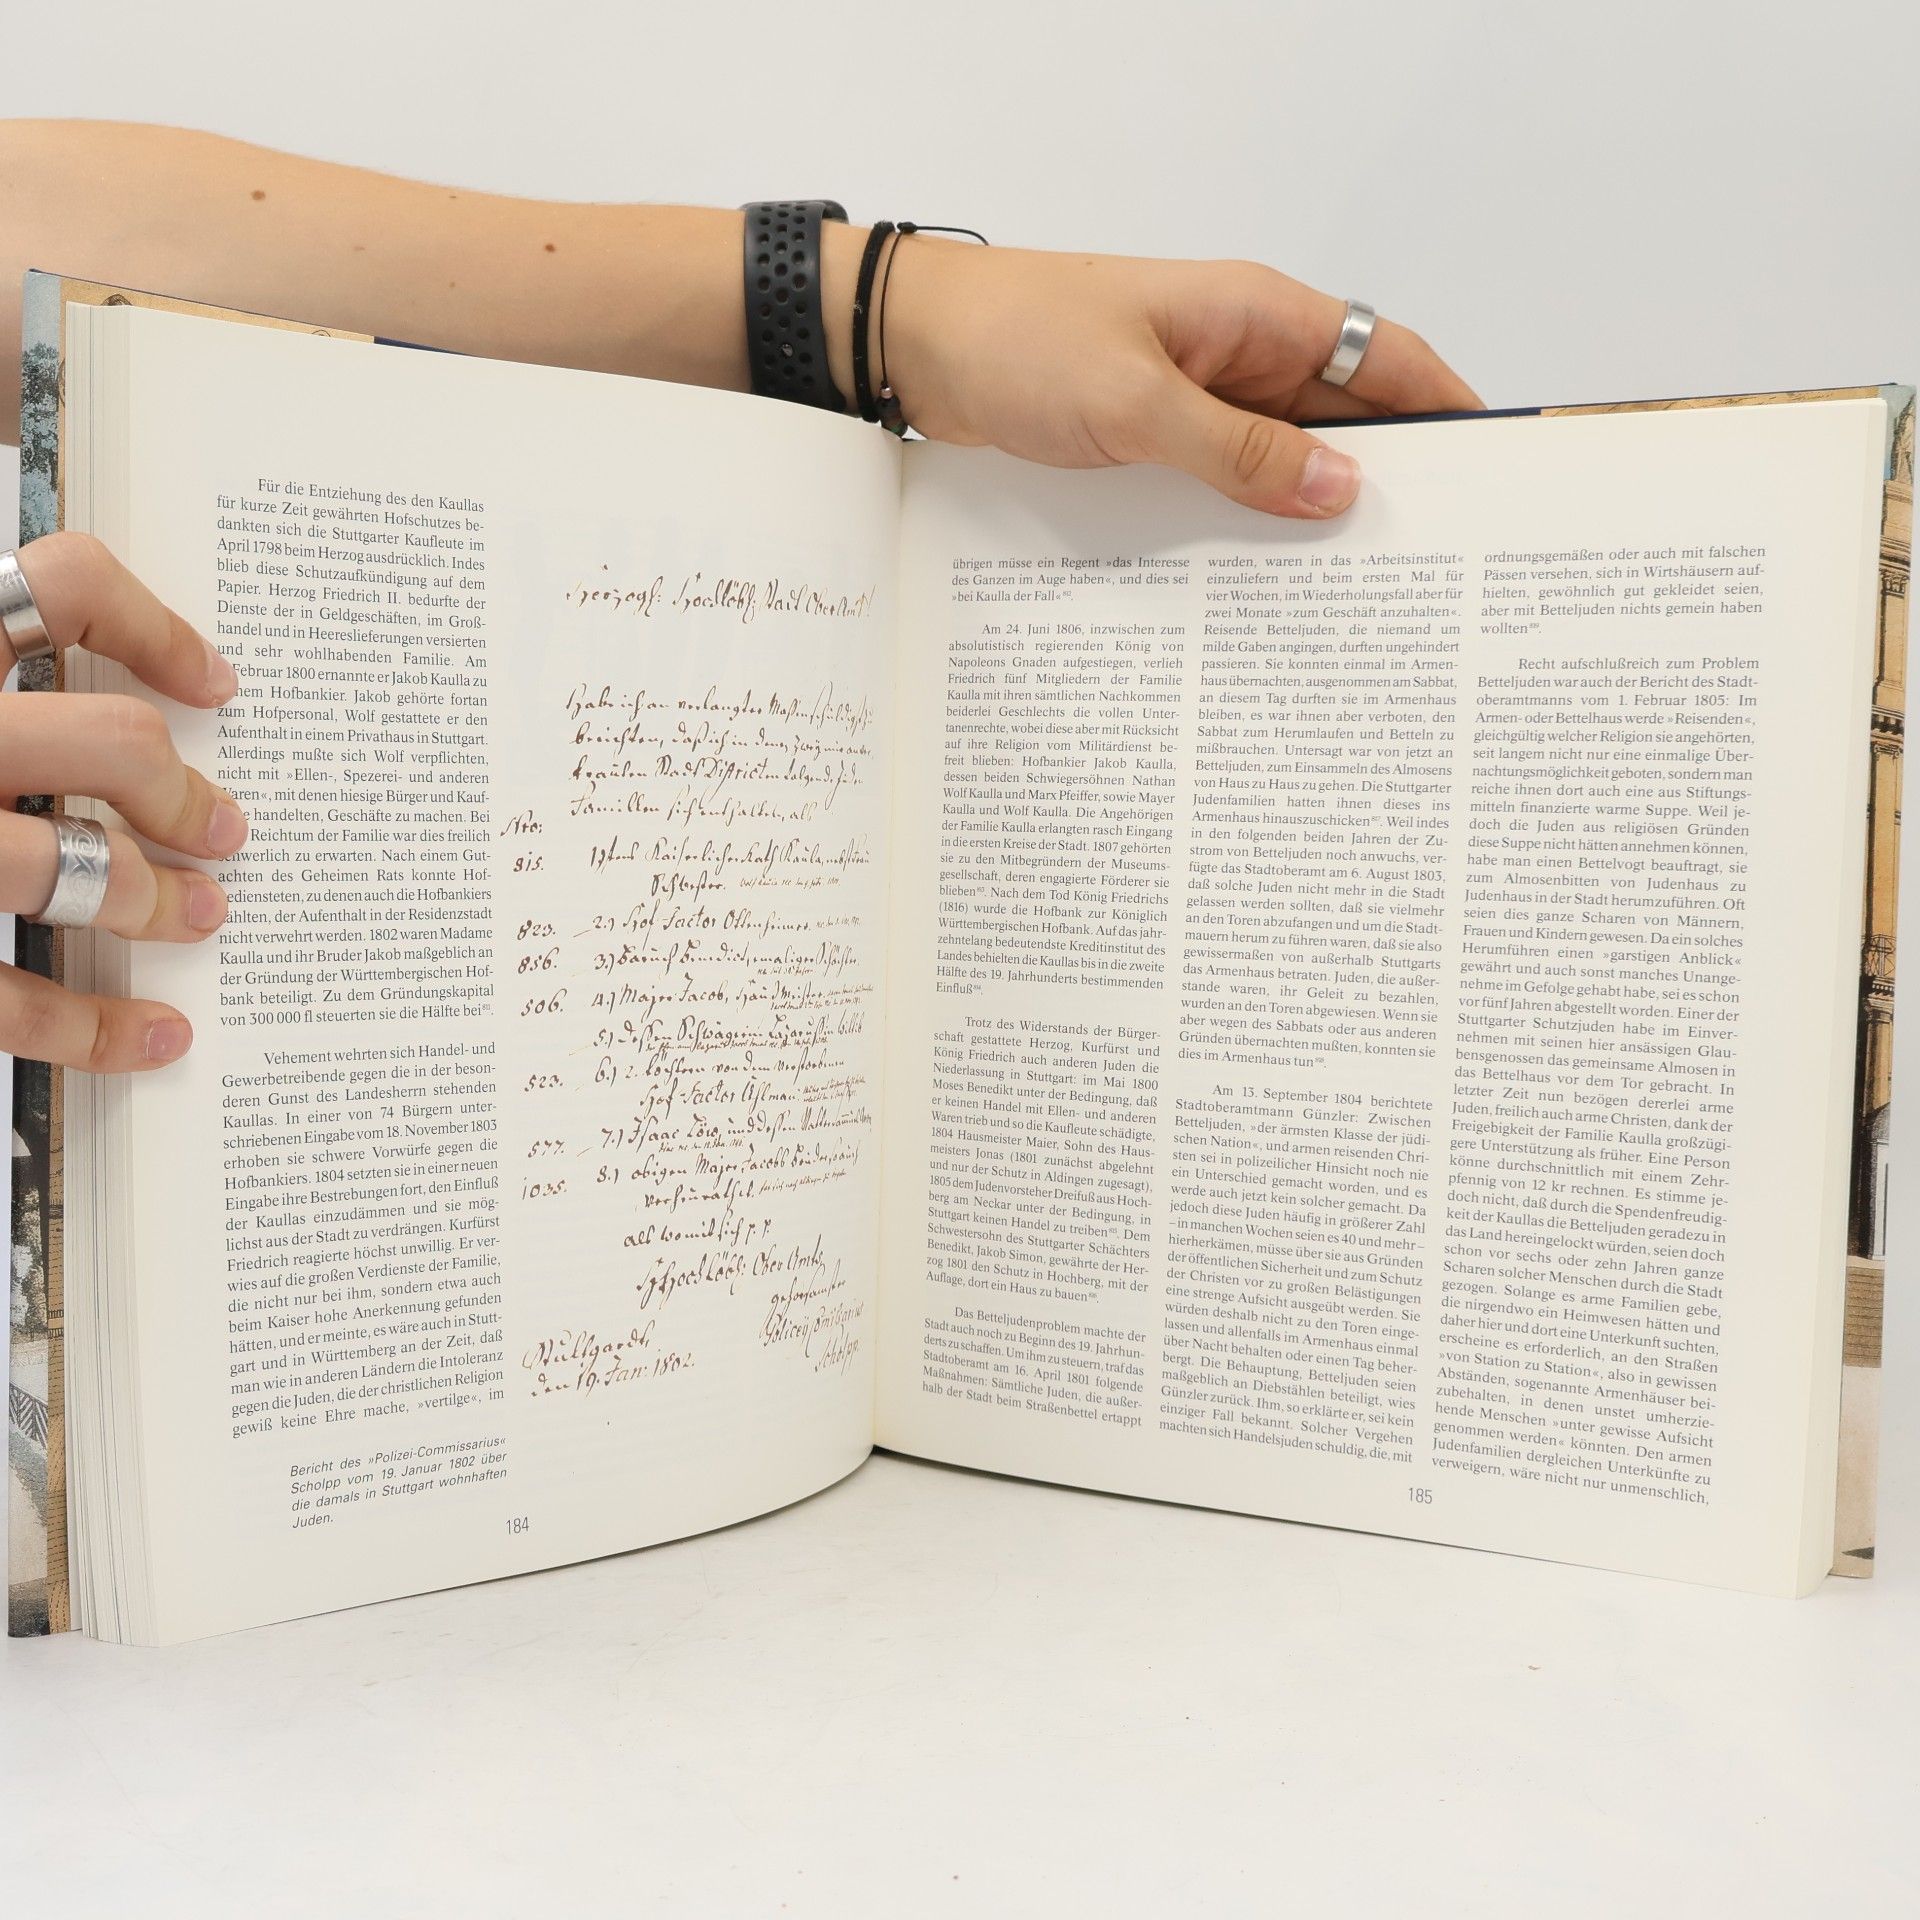 Für die Entziehung des den Kaullas
für kurze Zeit gewährten Hofschutzes be-
dankten sich die Stuttgarter Kaufleute im
April 1798 beim Herzog ausdrücklich. Indes
blieb diese Schutzaufkündigung auf dem
Papier. Herzog Friedrich II. bedurfte der
Dienste der in Geldgeschäften, im Groß-
handel und in Heereslieferungen versierten
und sehr wohlhabenden Familie. Am
Februar 1800 ernannte er Jakob Kaulla zu
Hofbankier. Jakob gehörte fortan
zum Hofpersonal, Wolf gestattete er den
Aufenthalt in einem Privathaus in Stuttgart.
Allerdings mußte sich Wolf verpflichten,
nicht mit »Ellen-, Spezerei- und anderen
Waren«, mit denen hiesige Bürger und Kauf-
handelten, Geschäfte zu machen. Bei
Reichtum der Familie war dies freilich
schwerlich zu erwarten. Nach einem Gut-
achten des Geheimen Rats konnte Hof-
bediensteten, zu denen auch die Hofbankiers
zählten, der Aufenthalt in der Residenzstadt
nicht verwehrt werden. 1802 waren Madame
Kaulla und ihr Bruder Jakob maßgeblich an
der Gründung der Württembergischen Hof-
bank beteiligt. Zu dem Gründungskapital
von 300 000 fl steuerten sie die Hälfte bei⁸¹¹.
Vehement wehrten sich Handel- und
Gewerbetreibende gegen die in der beson-
deren Gunst des Landesherrn stehenden
Kaullas. In einer von 74 Bürgern unter-
schriebenen Eingabe vom 18. November 1803
erhoben sie schwere Vorwürfe gegen die
Hofbankiers. 1804 setzten sie in einer neuen
Eingabe ihre Bestrebungen fort, den Einfluß
der Kaullas einzudämmen und sie mög-
lichst aus der Stadt zu verdrängen. Kurfürst
Friedrich reagierte höchst unwillig. Er ver-
wies auf die großen Verdienste der Familie,
die nicht nur bei ihm, sondern etwa auch
beim Kaiser hohe Anerkennung gefunden
hätten, und er meinte, es wäre auch in Stutt-
gart und in Württemberg an der Zeit, daß
man wie in anderen Ländern die Intoleranz
gegen die Juden, die der christlichen Religion
gewiß keine Ehre mache, »vertilge«, im
Bericht des »Polizei-Commissarius«
Scholpp vom 19. Januar 1802 über
die damals in Stuttgart wohnhaften
Juden.
184
Herzogl: Hochlöbl: Stadt OberAmt!
Habe ich an verlangter Maßen schuldigst
berichten, daß ich in denen zwey mir anver-
trauten Stadt Districten folgende Juden
Familien sich enthalten, als
Nro:
815. 1) Kaiserlicher Rath Kaula, nebst
Schwester.
823. 2.) Hof Factor Ottenheimer.
856. 3.) Baruch Benedict, ehemaliger Schächter.
506. 4.) Majer Jacob, HausMeister.
5.) Dessen Schwägerin
523. 6.) 2. Töchtern von dem verstorbenen
Hof-Factor
577. 7.) Isaac Löw, und dessen
1035. 8.) obigen Majer Jacobs Bruder, auch
verheurathet.
als womit sich p. p.
Hochlöbl: Ober Amts
gehorsamster
Policey
Scholpp.
Stuttgardt,
den 19. Jan: 1802.
übrigen müsse ein Regent »das Interesse
des Ganzen im Auge haben«, und dies sei
»bei Kaulla der Fall«⁸¹².
Am 24. Juni 1806, inzwischen zum
absolutistisch regierenden König von
Napoleons Gnaden aufgestiegen, verlieh
Friedrich fünf Mitgliedern der Familie
Kaulla mit ihren sämtlichen Nachkommen
beiderlei Geschlechts die vollen Unter-
tanenrechte, wobei diese aber mit Rücksicht
auf ihre Religion vom Militärdienst be-
freit blieben: Hofbankier Jakob Kaulla,
dessen beiden Schwiegersöhnen Nathan
Wolf Kaulla und Marx Pfeiffer, sowie Mayer
Kaulla und Wolf Kaulla. Die Angehörigen
der Familie Kaulla erlangten rasch Eingang
in die ersten Kreise der Stadt. 1807 gehörten
sie zu den Mitbegründern der Museums-
gesellschaft, deren engagierte Förderer sie
blieben⁸¹³. Nach dem Tod König Friedrichs
(1816) wurde die Hofbank zur Königlich
Württembergischen Hofbank. Auf das jahr-
zehntelang bedeutendste Kreditinstitut des
Landes behielten die Kaullas bis in die zweite
Hälfte des 19. Jahrhunderts bestimmenden
Einfluß⁸¹⁴.
Trotz des Widerstands der Bürger-
schaft gestattete Herzog, Kurfürst und
König Friedrich auch anderen Juden die
Niederlassung in Stuttgart: im Mai 1800
Moses Benedikt unter der Bedingung, daß
er keinen Handel mit Ellen- und anderen
Waren trieb und so die Kaufleute schädigte,
1804 Hausmeister Maier, Sohn des Haus-
meisters Jonas (1801 zunächst abgelehnt
und nur der Schutz in Aldingen zugesagt),
1805 dem Judenvorsteher Dreifuß aus Hoch-
berg am Neckar unter der Bedingung, in
Stuttgart keinen Handel zu treiben⁸¹⁵. Dem
Schwestersohn des Stuttgarter Schächters
Benedikt, Jakob Simon, gewährte der Her-
zog 1801 den Schutz in Hochberg, mit der
Auflage, dort ein Haus zu bauen⁸¹⁶.
Das Betteljudenproblem machte der
Stadt auch noch zu Beginn des 19. Jahrhun-
derts zu schaffen. Um ihm zu steuern, traf das
Stadtoberamt am 16. April 1801 folgende
Maßnahmen: Sämtliche Juden, die außer-
halb der Stadt beim Straßenbettel ertappt
wurden, waren in das »Arbeitsinstitut«
einzuliefern und beim ersten Mal für
vier Wochen, im Wiederholungsfall aber für
zwei Monate »zum Geschäft anzuhalten«.
Reisende Betteljuden, die niemand um
milde Gaben angingen, durften ungehindert
passieren. Sie konnten einmal im Armen-
haus übernachten, ausgenommen am Sabbat,
an diesem Tag durften sie im Armenhaus
bleiben, es war ihnen aber verboten, den
Sabbat zum Herumlaufen und Betteln zu
mißbrauchen. Untersagt war von jetzt an
Betteljuden, zum Einsammeln des Almosens
von Haus zu Haus zu gehen. Die Stuttgarter
Judenfamilien hatten ihnen dieses ins
Armenhaus hinauszuschicken⁸¹⁷. Weil indes
in den folgenden beiden Jahren der Zu-
strom von Betteljuden noch anwuchs, ver-
fügte das Stadtoberamt am 6. August 1803,
daß solche Juden nicht mehr in die Stadt
gelassen werden sollten, daß sie vielmehr
an den Toren abzufangen und um die Stadt-
mauern herum zu führen waren, daß sie also
gewissermaßen von außerhalb Stuttgarts
das Armenhaus betraten. Juden, die außer-
stande waren, ihr Geleit zu bezahlen,
wurden an den Toren abgewiesen. Wenn sie
aber wegen des Sabbats oder aus anderen
Gründen übernachten mußten, konnten sie
dies im Armenhaus tun⁸¹⁸.
Am 13. September 1804 berichtete
Stadtoberamtmann Günzler: Zwischen
Betteljuden, »der ärmsten Klasse der jüdi-
schen Nation«, und armen reisenden Chri-
sten sei in polizeilicher Hinsicht noch nie
ein Unterschied gemacht worden, und es
werde auch jetzt kein solcher gemacht. Da
jedoch diese Juden häufig in größerer Zahl
– in manchen Wochen seien es 40 und mehr –
hierherkämen, müsse über sie aus Gründen
der öffentlichen Sicherheit und zum Schutz
der Christen vor zu großen Belästigungen
eine strenge Aufsicht ausgeübt werden. Sie
würden deshalb nicht zu den Toren einge-
lassen und allenfalls im Armenhaus einmal
über Nacht behalten oder einen Tag beher-
bergt. Die Behauptung, Betteljuden seien
maßgeblich an Diebstählen beteiligt, wies
Günzler zurück. Ihm, so erklärte er, sei kein
einziger Fall bekannt. Solcher Vergehen
machten sich Handelsjuden schuldig, die, mit
ordnungsgemäßen oder auch mit falschen
Pässen versehen, sich in Wirtshäusern auf-
hielten, gewöhnlich gut gekleidet seien,
aber mit Betteljuden nichts gemein haben
wollten⁸¹⁹.
Recht aufschlußreich zum Problem
Betteljuden war auch der Bericht des Stadt-
oberamtmanns vom 1. Februar 1805: Im
Armen- oder Bettelhaus werde »Reisenden«,
gleichgültig welcher Religion sie angehörten,
seit langem nicht nur eine einmalige Über-
nachtungsmöglichkeit geboten, sondern man
reiche ihnen dort auch eine aus Stiftungs-
mitteln finanzierte warme Suppe. Weil je-
doch die Juden aus religiösen Gründen
diese Suppe nicht hätten annehmen können,
habe man einen Bettelvogt beauftragt, sie
zum Almosenbitten von Judenhaus zu
Judenhaus in der Stadt herumzuführen. Oft
seien dies ganze Scharen von Männern,
Frauen und Kindern gewesen. Da ein solches
Herumführen einen »garstigen Anblick«
gewährt und auch sonst manches Unange-
nehme im Gefolge gehabt habe, sei es schon
vor fünf Jahren abgestellt worden. Einer der
Stuttgarter Schutzjuden habe im Einver-
nehmen mit seinen hier ansässigen Glau-
bensgenossen das gemeinsame Almosen in
das Bettelhaus vor dem Tor gebracht. In
letzter Zeit nun bezögen dererlei arme
Juden, freilich auch arme Christen, dank der
Freigebigkeit der Familie Kaulla großzügi-
gere Unterstützung als früher. Eine Person
könne durchschnittlich mit einem Zehr-
pfennig von 12 kr rechnen. Es stimme je-
doch nicht, daß durch die Spendenfreudig-
keit der Kaullas die Betteljuden geradezu in
das Land hereingelockt würden, seien doch
schon vor sechs oder zehn Jahren ganze
Scharen solcher Menschen durch die Stadt
gezogen. Solange es arme Familien gebe,
die nirgendwo ein Heimwesen hätten und
daher hier und dort eine Unterkunft suchten,
erscheine es erforderlich, an den Straßen
»von Station zu Station«, also in gewissen
Abständen, sogenannte Armenhäuser bei-
zubehalten, in denen unstet umherzie-
hende Menschen »unter gewisse Aufsicht
genommen werden« könnten. Den armen
Judenfamilien dergleichen Unterkünfte zu
verweigern, wäre nicht nur unmenschlich,
185